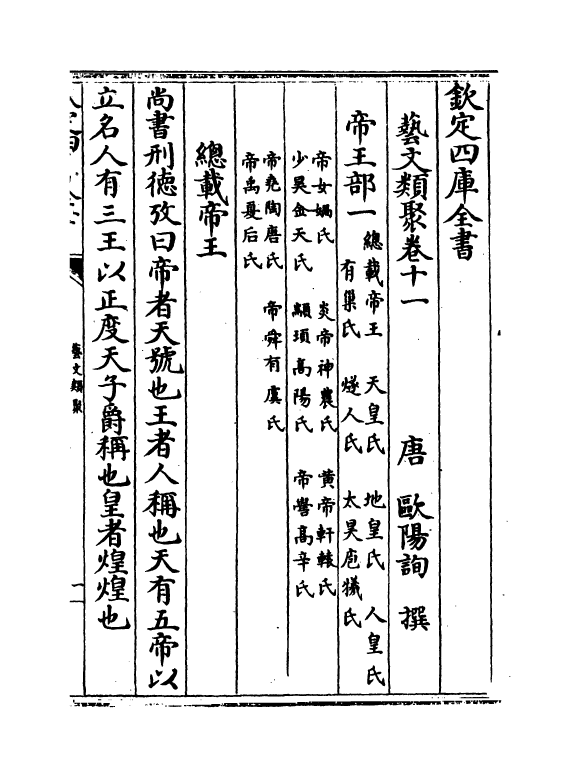 欽定四庫全書
藝文類聚卷十一
唐 歐陽詢 撰
帝王部一
總載帝王 天皇氏 地皇氏 人皇氏
有巢氏 燧人氏 太昊庖犧氏
帝女媧氏 炎帝神農氏 黄帝軒轅氏
少昊金天氏 顓頊高陽氏 帝嚳高辛氏
帝堯陶唐氏 帝舜有虞氏
帝禹夏后氏
總載帝王
尚書刑徳攷曰帝者天號也王者人稱也天有五帝以
立名人有三王以正度天子爵稱也皇者煌煌也
藝文類聚
一